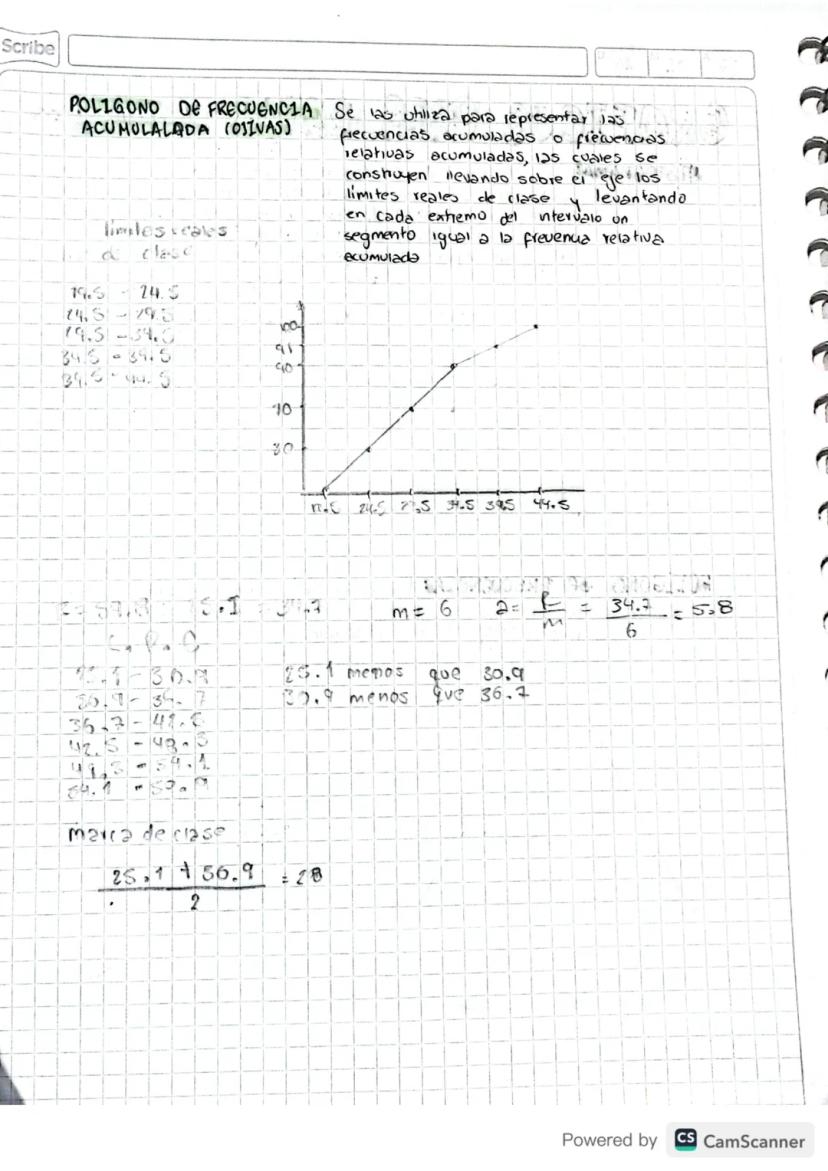 Scribe
POLIGONO DE FRECUENCIA
ACUMULALADA (OJIVAS)
Se las utiliza para representar las
frecuencias acumuladas o frecuencias
relativas acumuladas, las cuales se
construyen llevando sobre el eje los
límites reales de clase y levantando
en cada extremo del intervalo un
segmento igual a la frevenua relativa
acumulada
limites reales
de clase
19.5 - 24.5
24.5 - 29.5
34.5 - 39.5
39.5 - 44.5
100
91
90
70
30
24.5 34.5 39.5 44.5
m = 6 a = R/m = 34.7/6 = 5.8
25.1 - 30.9
36.7 - 42.5
42.5 - 48.3
25.1 menos que 30.9
30.9 menos que 36.7
marca de clase
25.1 + 56.9 / 2 = 28
Powered by CS CamScanner